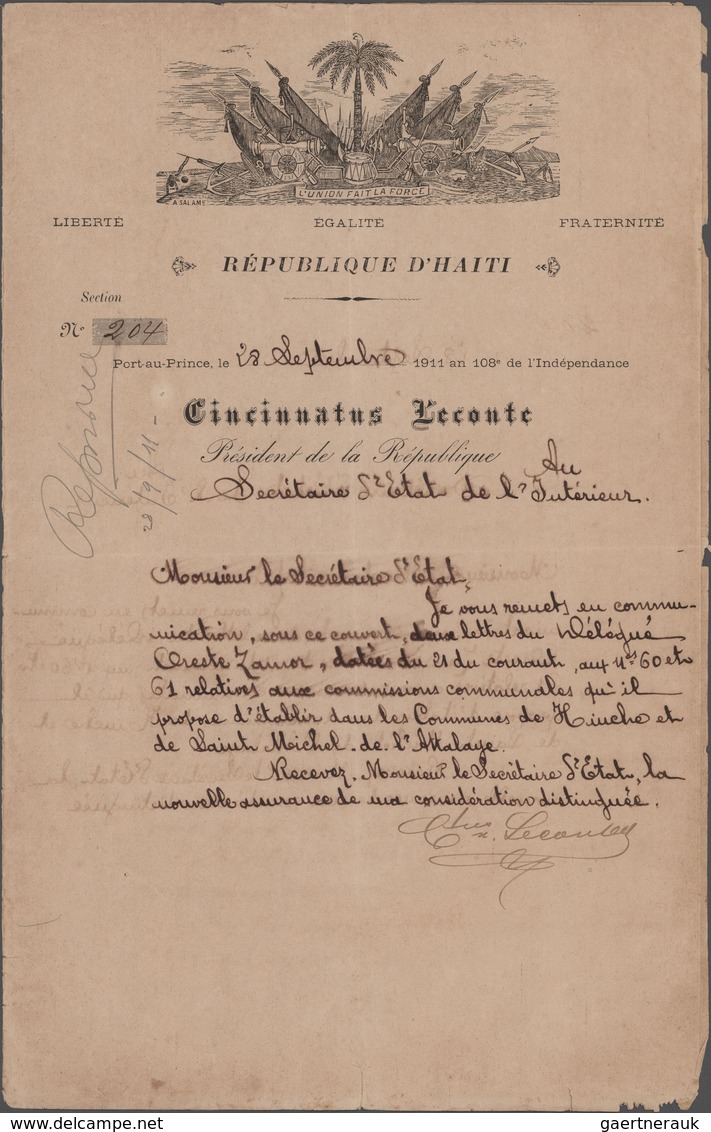 L'UNION FAIT LA FORCE
A. SALAME
LIBERTÉ ÉGALITÉ FRATERNITÉ
RÉPUBLIQUE D'HAITI
Section
N° 204
Réponse
28/9/11 -
Port-au-Prince, le 28 Septembre 1911 an 108e de l'Indépendance
Cincinnatus Leconte
Président de la République
Au
Secrétaire d'Etat de l'Intérieur.
Monsieur le Secrétaire d'Etat,
Je vous remets en commu-
nication, sous ce couvert, deux lettres du Délégué
Oreste Zamor, datées du 21 du courant, aux Nos 60 et
61 relatives aux commissions communales qu'il
propose d'établir dans les Communes de Hinche et
de Saint Michel de l'Attalaye.
Recevez, Monsieur le Secrétaire d'Etat, la
nouvelle assurance de ma considération distinguée.
Leconte
delcampe.net
gaertnerauk